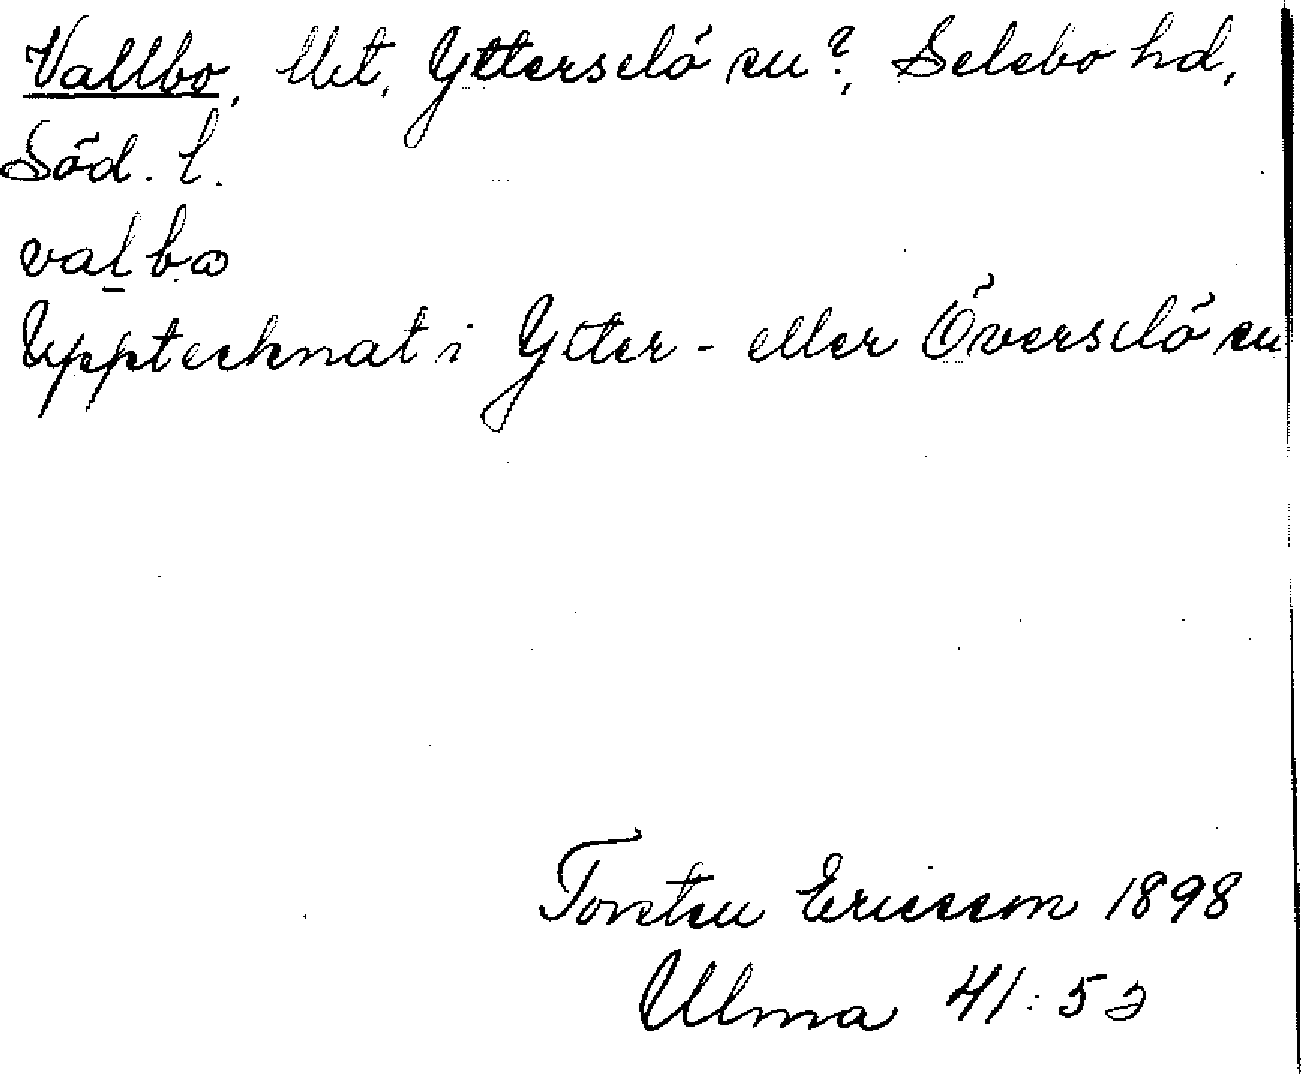 Vallbo, Ytterselö sn?, Selebo hd,
Söd. l.
valbω
Upptecknat i Ytter- eller Överselö sn
Torsten Ericsson 1898
Ulma 41:52